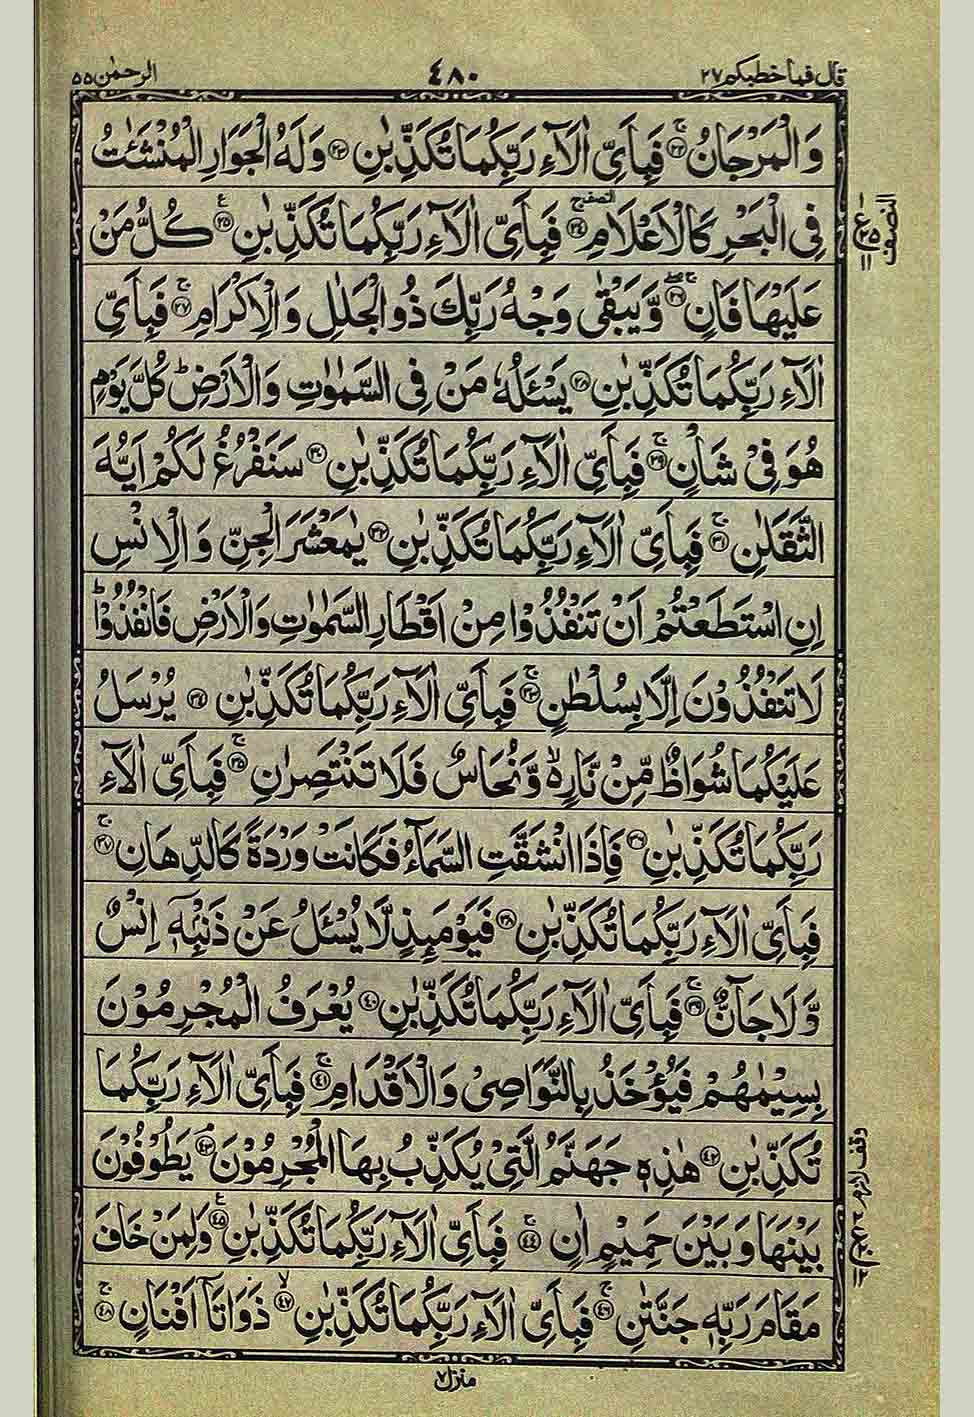 قال فما خطبكم ٢٧
٤٨٠
الرحمٰن ٥٥
وَالْمَرْجَانُ ۚ﴿٢٢﴾ فَبِاَيِّ اٰلَآءِ رَبِّكُمَا تُكَذِّبٰنِ ﴿٢٣﴾ وَلَهُ الْجَوَارِ الْمُنْشَـٰٔتُ
فِي الْبَحْرِ كَالْاَعْلَامِ ۚ﴿٢٤﴾ فَبِاَيِّ اٰلَآءِ رَبِّكُمَا تُكَذِّبٰنِ ﴿٢٥﴾ كُلُّ مَنْ
عَلَيْهَا فَانٍ ۚ﴿٢٦﴾ وَّيَبْقٰى وَجْهُ رَبِّكَ ذُو الْجَلٰلِ وَالْاِكْرَامِ ۚ﴿٢٧﴾ فَبِاَيِّ
اٰلَآءِ رَبِّكُمَا تُكَذِّبٰنِ ﴿٢٨﴾ يَسْـَٔلُهٗ مَنْ فِي السَّمٰوٰتِ وَالْاَرْضِ ؕ كُلَّ يَوْمٍ
هُوَ فِيْ شَاْنٍ ۚ﴿٢٩﴾ فَبِاَيِّ اٰلَآءِ رَبِّكُمَا تُكَذِّبٰنِ ﴿٣٠﴾ سَنَفْرُغُ لَكُمْ اَيُّهَ
الثَّقَلٰنِ ۚ﴿٣١﴾ فَبِاَيِّ اٰلَآءِ رَبِّكُمَا تُكَذِّبٰنِ ﴿٣٢﴾ يٰمَعْشَرَ الْجِنِّ وَالْاِنْسِ
اِنِ اسْتَطَعْتُمْ اَنْ تَنْفُذُوْا مِنْ اَقْطَارِ السَّمٰوٰتِ وَالْاَرْضِ فَانْفُذُوْا ؕ
لَا تَنْفُذُوْنَ اِلَّا بِسُلْطٰنٍ ۚ﴿٣٣﴾ فَبِاَيِّ اٰلَآءِ رَبِّكُمَا تُكَذِّبٰنِ ﴿٣٤﴾ يُرْسَلُ
عَلَيْكُمَا شُوَاظٌ مِّنْ نَّارٍ ۙ وَّنُحَاسٌ فَلَا تَنْتَصِرٰنِ ۚ﴿٣٥﴾ فَبِاَيِّ اٰلَآءِ
رَبِّكُمَا تُكَذِّبٰنِ ﴿٣٦﴾ فَاِذَا انْشَقَّتِ السَّمَآءُ فَكَانَتْ وَرْدَةً كَالدِّهَانِ ۚ﴿٣٧﴾
فَبِاَيِّ اٰلَآءِ رَبِّكُمَا تُكَذِّبٰنِ ﴿٣٨﴾ فَيَوْمَئِذٍ لَّا يُسْـَٔلُ عَنْ ذَنْۢبِهٖٓ اِنْسٌ
وَّلَا جَآنٌّ ۚ﴿٣٩﴾ فَبِاَيِّ اٰلَآءِ رَبِّكُمَا تُكَذِّبٰنِ ﴿٤٠﴾ يُعْرَفُ الْمُجْرِمُوْنَ
بِسِيْمٰهُمْ فَيُؤْخَذُ بِالنَّوَاصِيْ وَالْاَقْدَامِ ۚ﴿٤١﴾ فَبِاَيِّ اٰلَآءِ رَبِّكُمَا
تُكَذِّبٰنِ ﴿٤٢﴾ هٰذِهٖ جَهَنَّمُ الَّتِيْ يُكَذِّبُ بِهَا الْمُجْرِمُوْنَ ۘ﴿٤٣﴾ يَطُوْفُوْنَ
بَيْنَهَا وَبَيْنَ حَمِيْمٍ اٰنٍ ۚ﴿٤٤﴾ فَبِاَيِّ اٰلَآءِ رَبِّكُمَا تُكَذِّبٰنِ ﴿٤٥﴾ وَلِمَنْ خَافَ
مَقَامَ رَبِّهٖ جَنَّتٰنِ ۚ﴿٤٦﴾ فَبِاَيِّ اٰلَآءِ رَبِّكُمَا تُكَذِّبٰنِ ۙ﴿٤٧﴾ ذَوَاتَآ اَفْنَانٍ ۚ﴿٤٨﴾
النصف
وقف لازم
منزل ٧